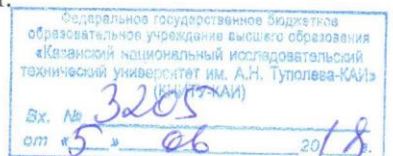 Федеральное государственное бюджетное
образовательное учреждение высшего образования
«Казанский национальный исследовательский
технический университет им. А.Н. Туполева-КАИ»
(КНИТУ-КАИ)
Вх. № 3205
от «5» 06 2018г.